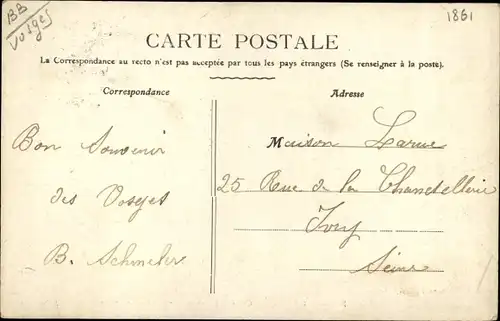 BB
Vosges
1861
CARTE POSTALE
La Correspondance au recto n'est pas acceptée par tous les pays étrangers (Se renseigner à la poste).
Correspondance
Adresse
Bon Souvenir
des Vosges
B.
Maison Larue
25 Rue de la Chancellerie
Ivry
Seine